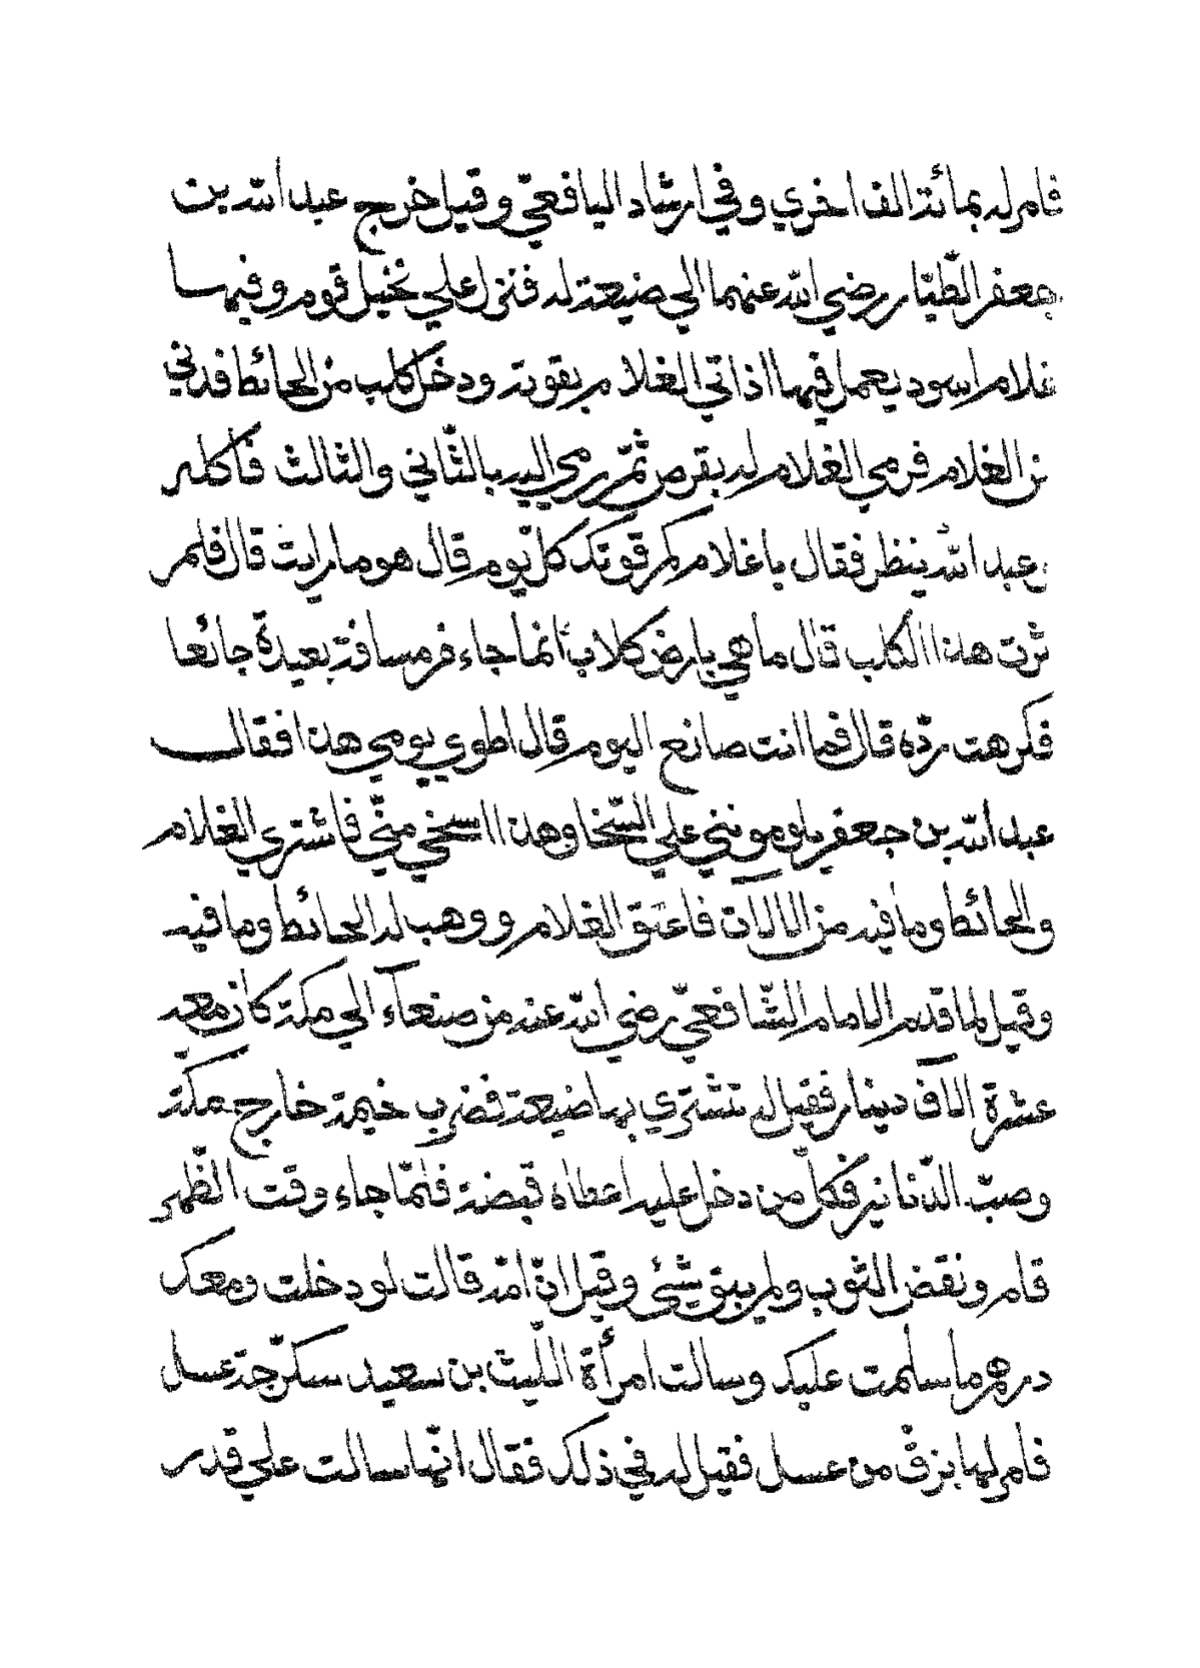 فامر له بمائة الف اخري وفي ارشاد اليافعيّ وقيل خرج عبد الله بن
جعفر الطّيّار رضي الله عنهما الي ضيعة له فنزل علي نخيل قوم وفيها
غلام اسود يعمل فيها اذ اتي الغلام بقوته ودخل كلب من الحائط فدني
من الغلام فرمي الغلام له بقرص ثمّ رمي اليه بالثّاني والثالث فاكله
وعبد الله ينظر فقال ياغلام كم قوتك كلّ يوم قال هو ما رايت قال فلم
ثرت هذا الكلب قال ماهي بارض كلاب انما جاء فر مسافة بعيدة جائعا
فكرهت ردّه قال فما انت صانع اليوم قال اطوي يومي هذا فقال
عبد الله بن جعفر يلوموننی علي السّخا وهذا اسخي منّي فاشتري الغلام
والحائط وما فيه من الالات فاعتق الغلام ووهب له الحائط وما فيه
وقيل لما قدم الامام الشّافعيّ رضي الله عنه من صنعآء الي مكة كان معه
عشرة الآف دينار فقيل له تشتري بها ضيعة فضرب خيمة خارج مكة
وصبّ الدّنانير فكلّ من دخل عليه اعطاه قبضة فلمّا جاء وقت الظّهر
قام ونقض الثوب ولم يبق شئ وقيل انّ امّه قالت لو دخلت ومعك
درهم ما سلمت عليك وسالت امرأة اللّيث بن سعيد سكرّجة عسل
فامر لها بزقّ من عسل فقيل له في ذلك فقال انّها سالت علي قدر